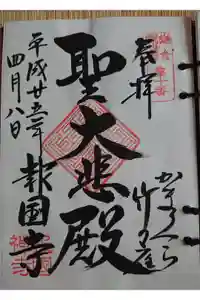 奉拝
かまくら
竹の庭
聖大悲殿
平成廿五年
四月八日
報国寺